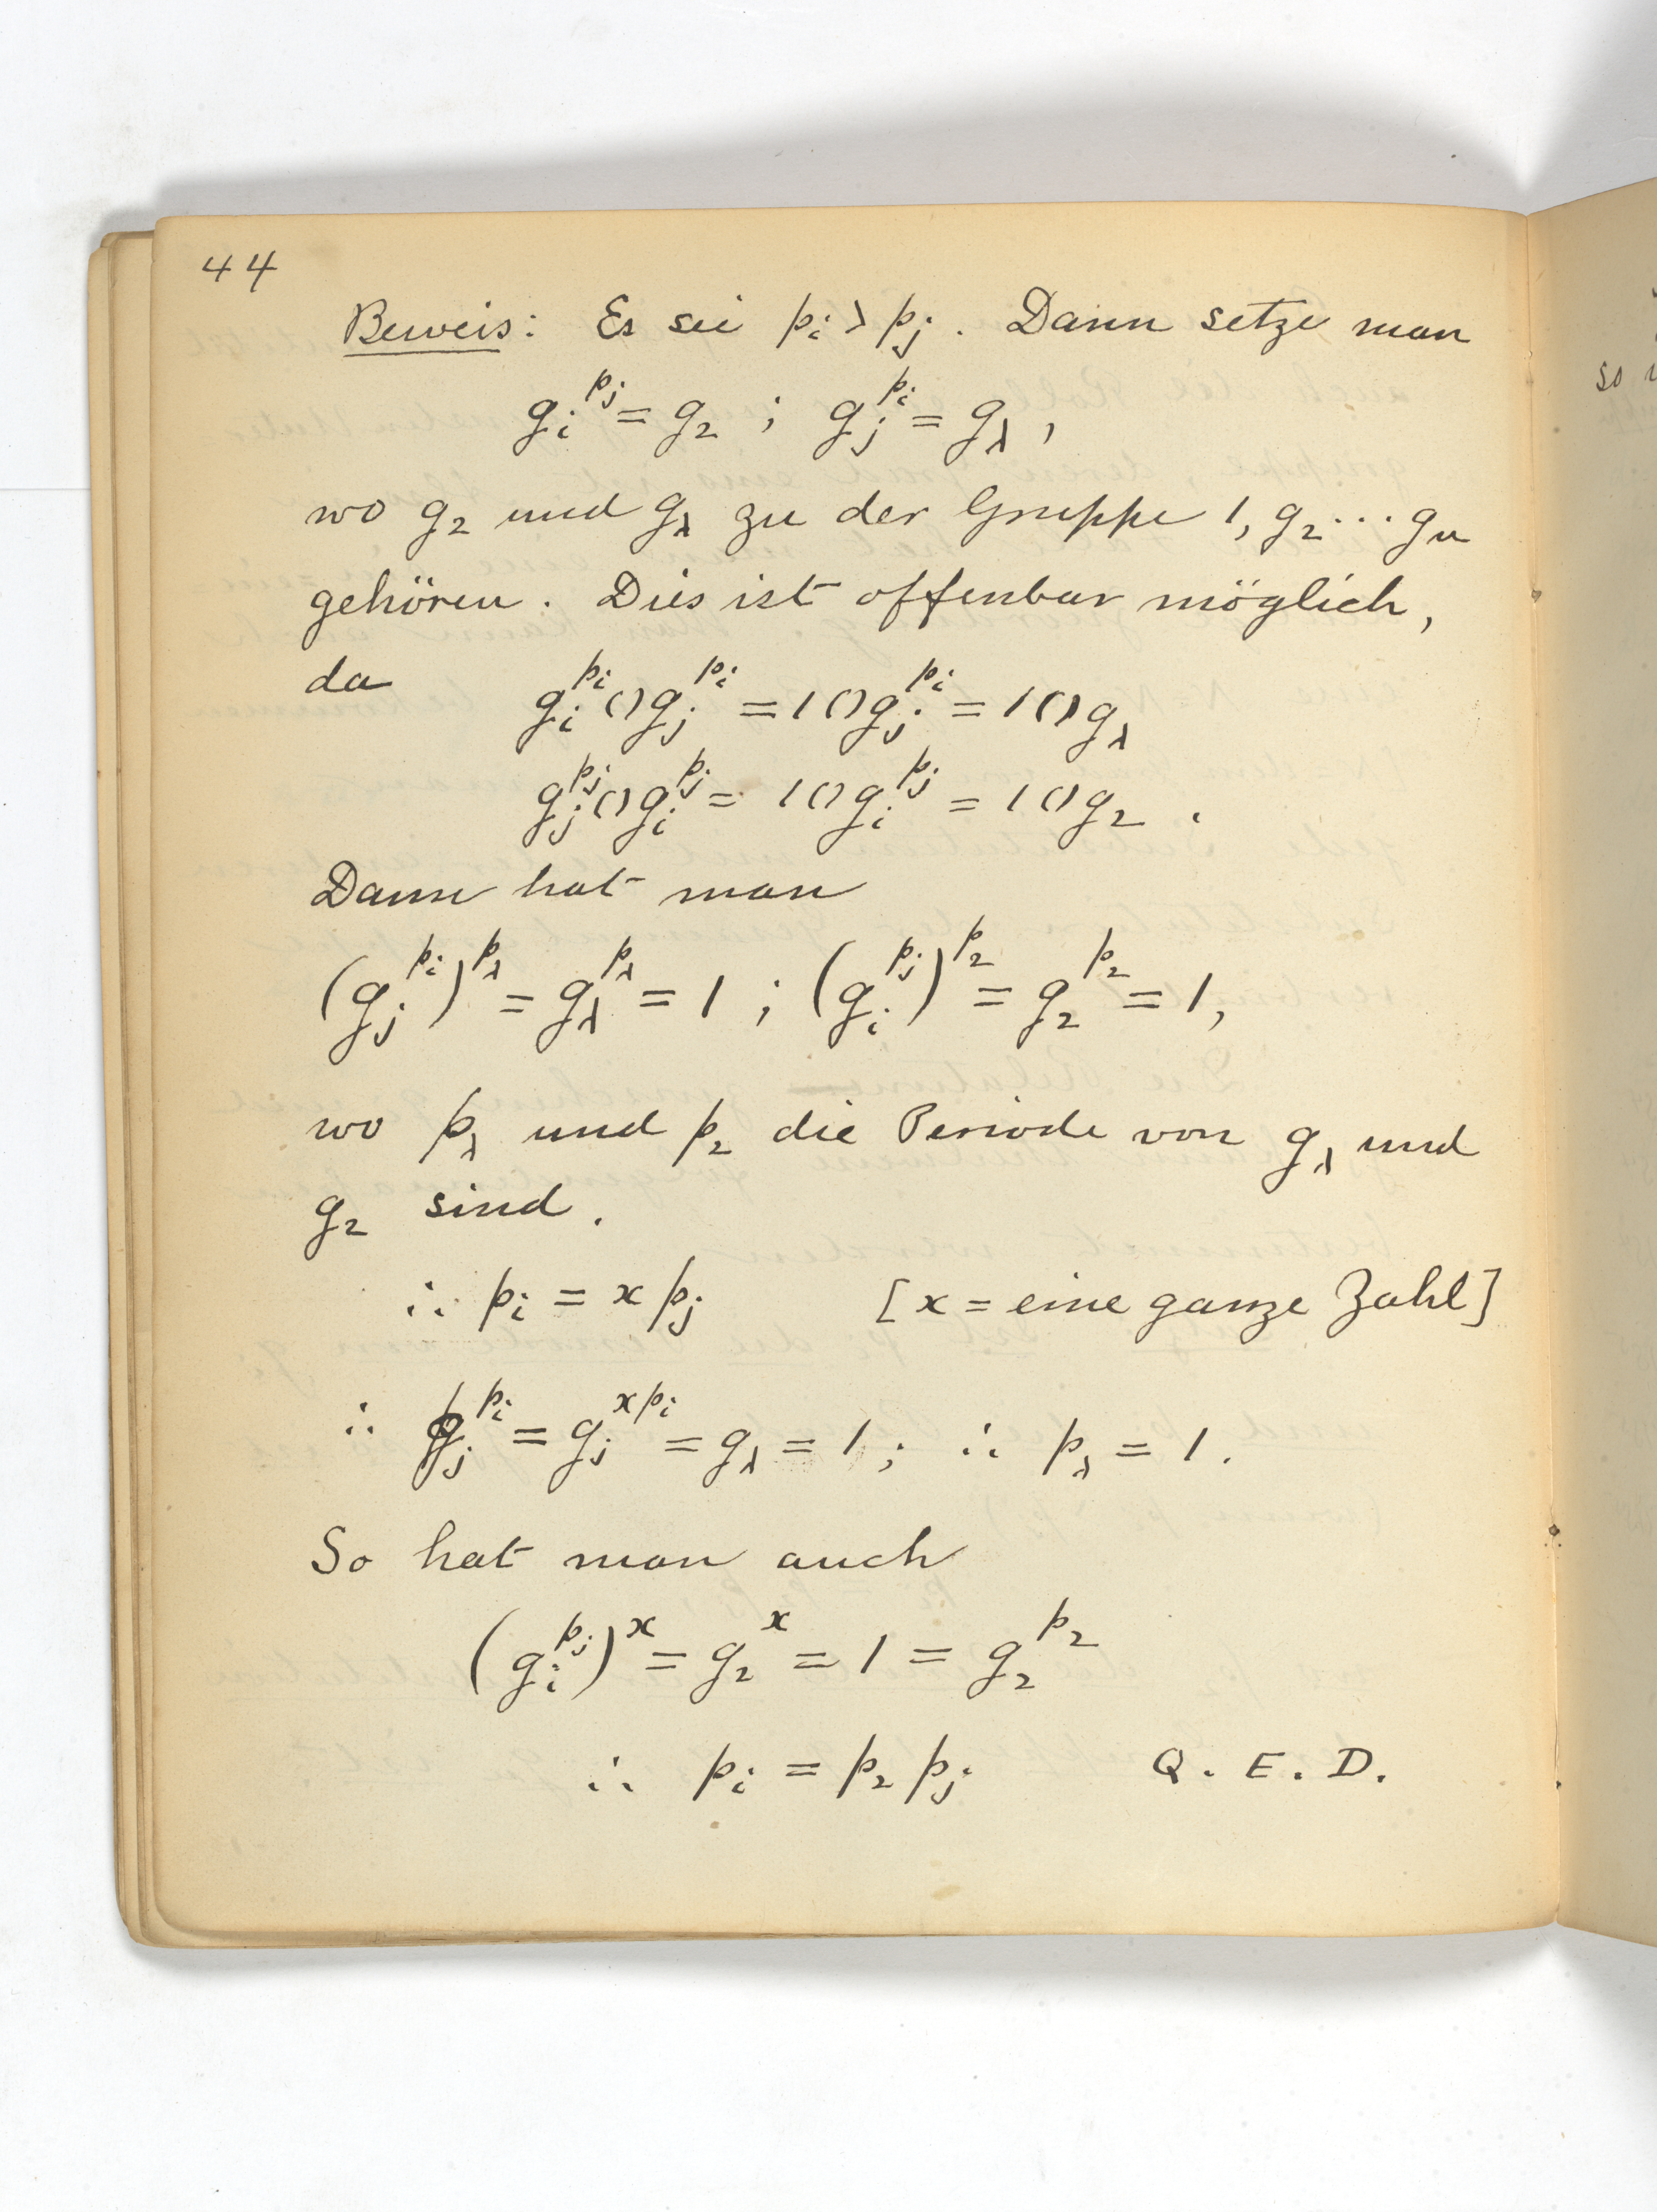 44
Beweis: Es sei p_i > p_j. Dann setze man
g_i^{p_j} = g_2 ; g_j^{p_i} = g_λ,
wo g_2 und g_λ zu der Gruppe 1, g_2 ··· g_n
gehören. Dies ist offenbar möglich,
da g_i^{p_i} () g_j^{p_i} = 1 () g_j^{p_i} = 1 () g_λ
g_j^{p_j} () g_i^{p_j} = 1 () g_i^{p_j} = 1 () g_2.
Dann hat man
(g_j^{p_i})^{p_λ} = g_λ^{p_λ} = 1 ; (g_i^{p_j})^{p_2} = g_2^{p_2} = 1,
wo p_λ und p_2 die Periode von g_λ und
g_2 sind.
∴ p_i = x p_j [x = eine ganze Zahl]
∴ g_j^{p_i} = g_j^{x p_i} = g_λ = 1 ; ∴ p_λ = 1.
So hat man auch
(g_i^{p_j})^x = g_2^x = 1 = g_2^{p_2}
∴ p_i = p_2 p_j Q. E. D.
so